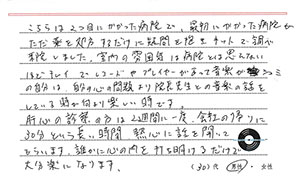 こちらは2つ目にかかった病院で、最初にかかった病院も
ただ薬を処方するだけに疑問を抱きネットで調べ
来院しました。室内の雰囲気は病院とは思えない
ほどキレイでレコードやプレイヤーがあって音楽が
の自分は、自分の心の問題より院長先生との音楽の話を
している時が何より楽しい時です。
肝心の診察の方は2週間に一度、会社の帰りに
30分という長い時間熱心に話を聞いて
もらいます。誰かに心の内を打ち明けるだけで
大分楽になります。
(30)代 男性・女性